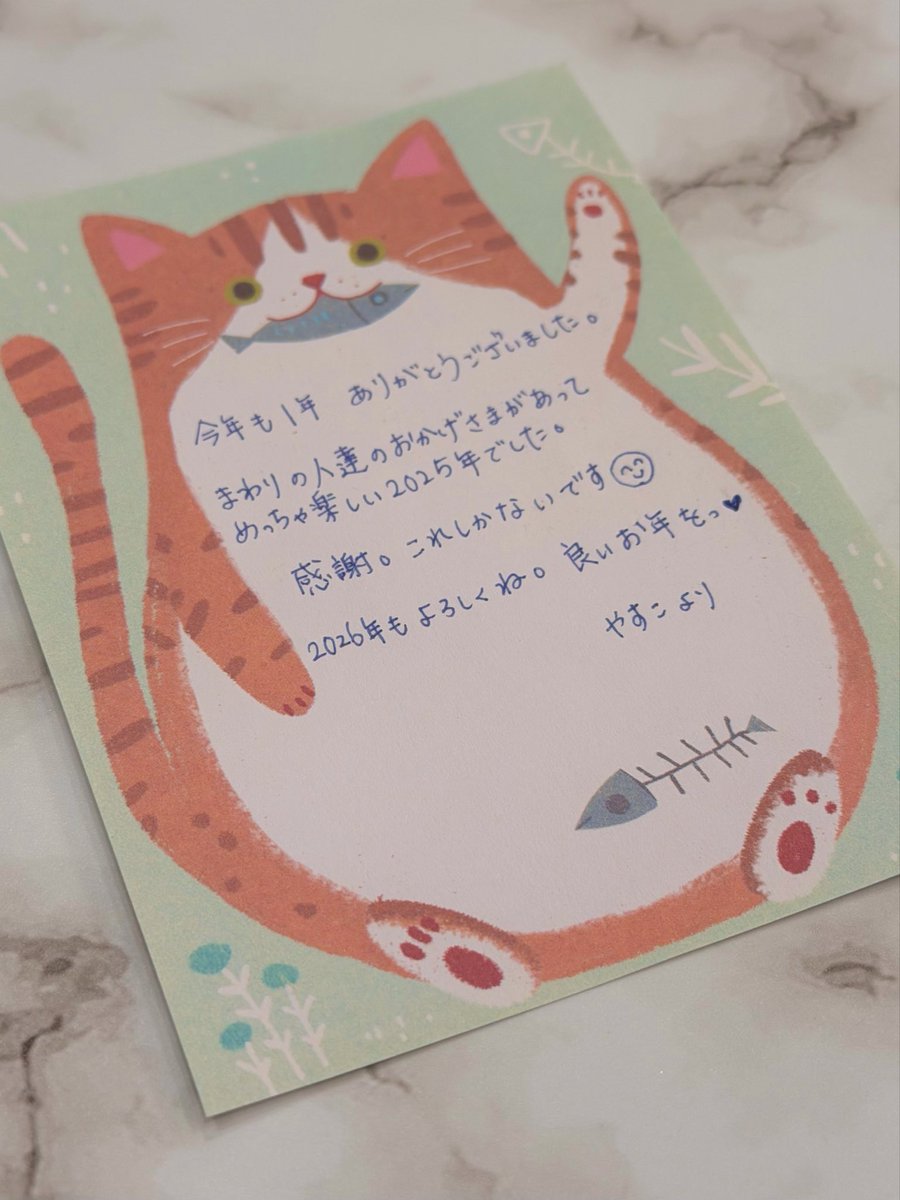 今年も1年 ありがとうございました。
まわりの人達のおかげさまがあって
めっちゃ楽しい2025年でした。
感謝。これしかないです😊
2026年もよろしくね。良いお年をっ♥
やすこより